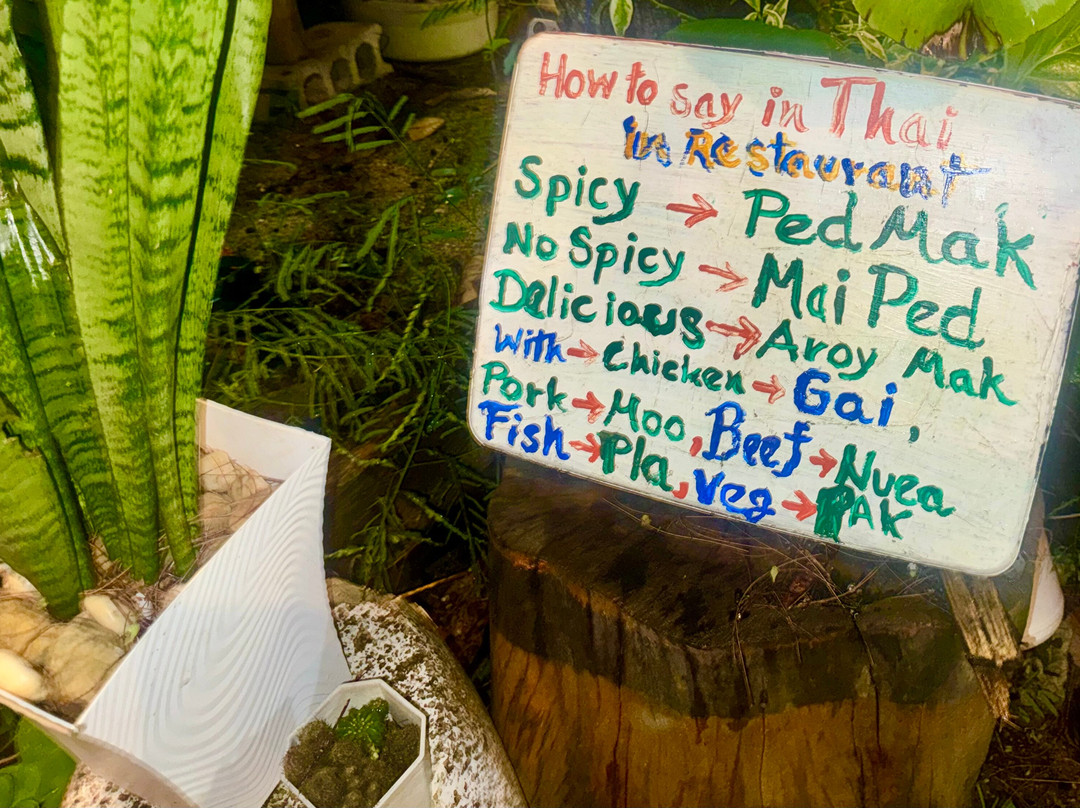 How to say in Thai
in Restaurant
Spicy → Ped Mak
No Spicy → Mai Ped
Delicious → Aroy Mak
With → Chicken → Gai,
Pork → Moo, Beef → Nuea
Fish → Pla, Veg → PAK